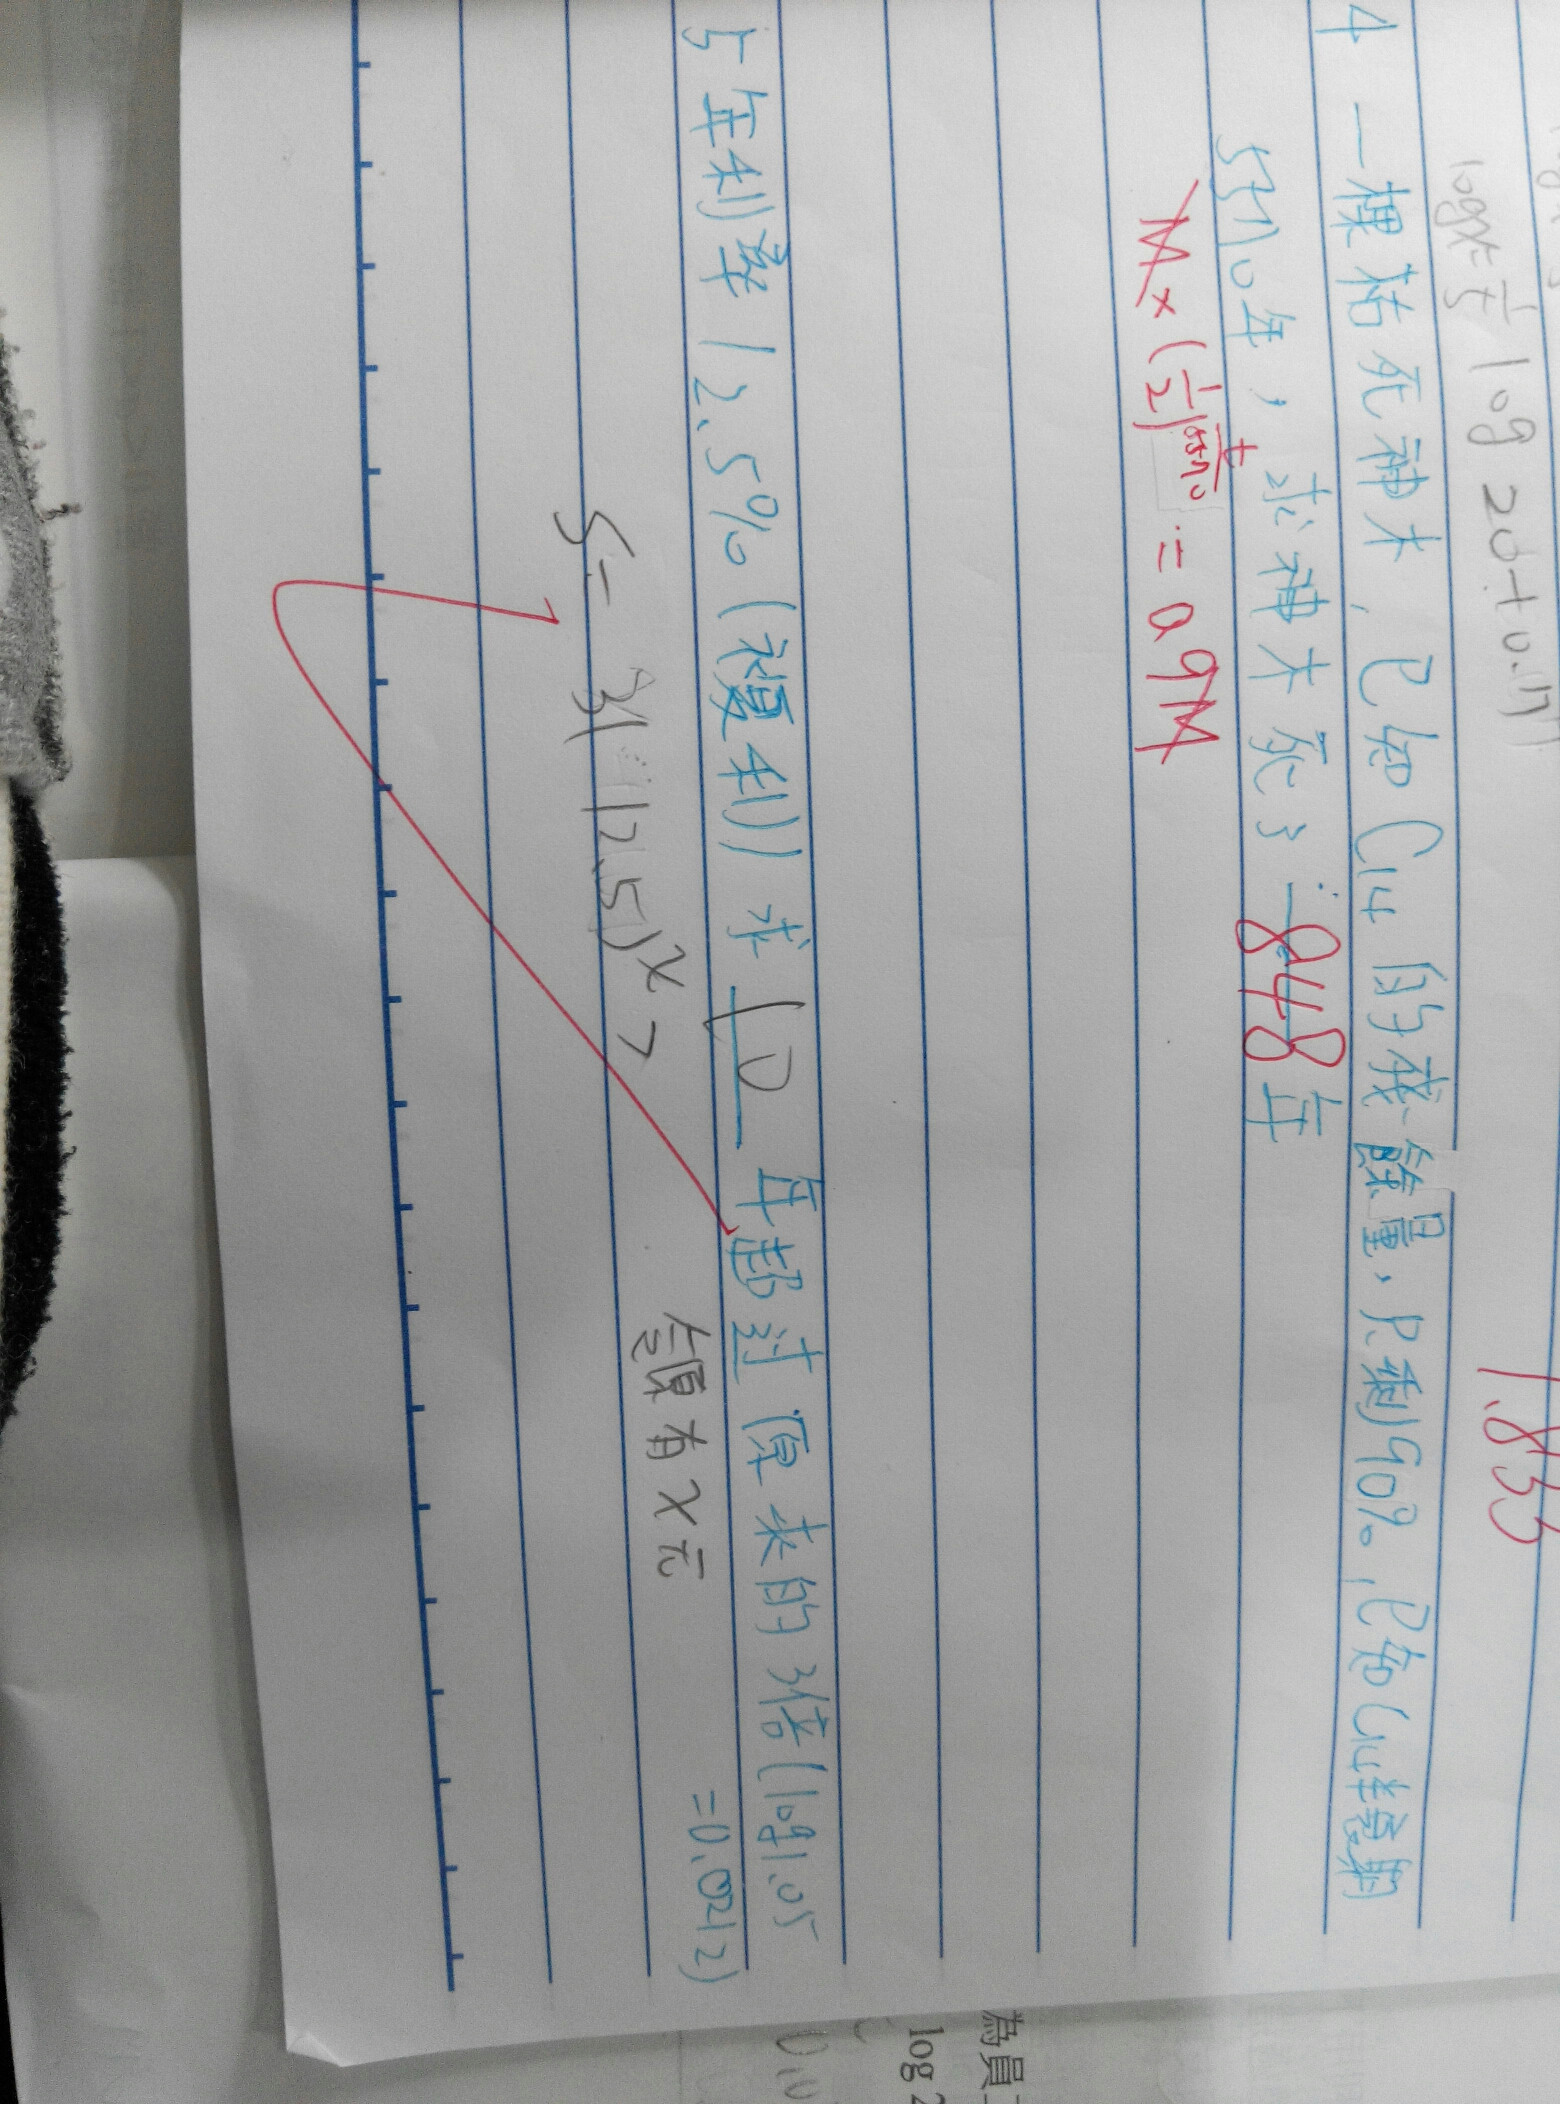 1.833
logx≒1/5 log 20+0.17
4 一棵祜死神木，已知C14的殘餘量，只剩90%，已知C14半衰期
5570年，求神木死了 848 年
M×(1/2)^(t/5570)=0.9M
5 年利率12.5%(複利)求 10 年超過原來的3倍(log1.05
=0.0212)
領有x元
5- 3(12.5)^x >
為員工
log 2